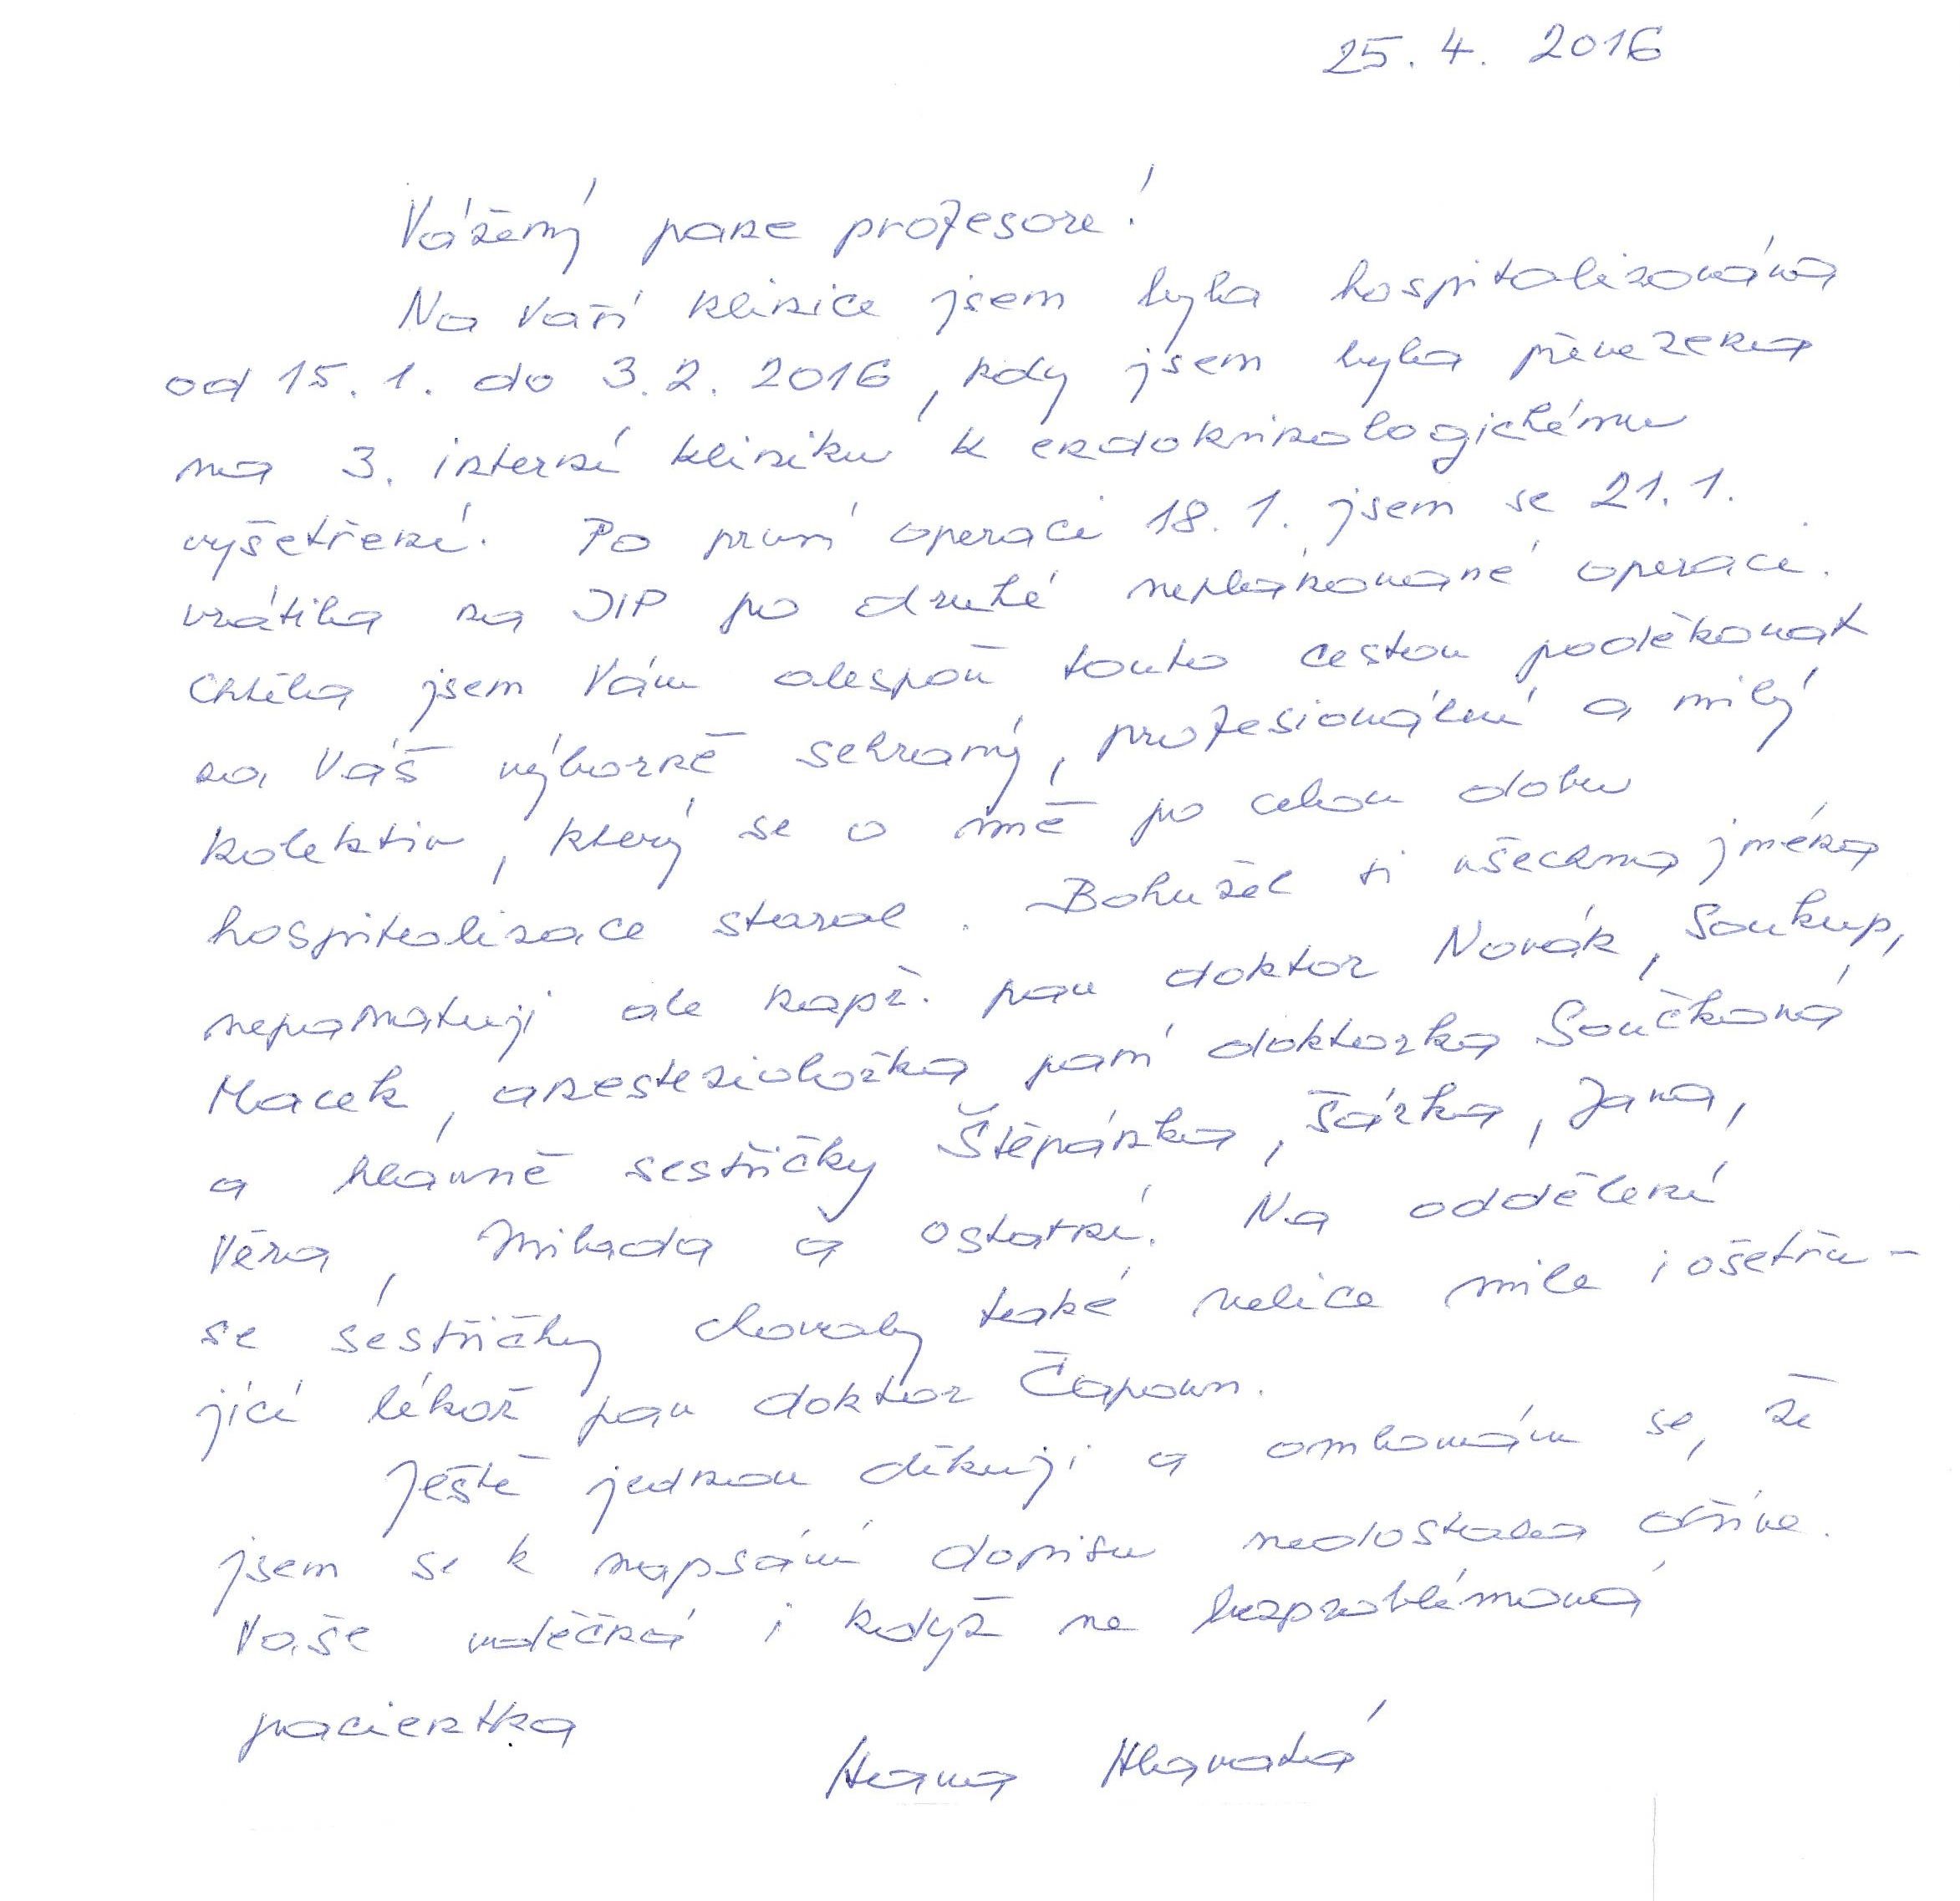 25. 4. 2016
Vážený pane profesore!
Na Vaší klinice jsem byla hospitalizována
od 15. 1. do 3. 2. 2016, kdy jsem byla převezena
na 3. interní kliniku k endokrinologickému
vyšetření. Po první operaci 18. 1. jsem se 21. 1.
vrátila na JIP po druhé neplánované operaci.
Chtěla jsem Vám alespoň touto cestou poděkovat
za Váš výborně sehraný, profesionální a milý
kolektiv, který se o mě po celou dobu
hospitalizace staral. Bohužel si všechna jména
nepamatuji ale např. pan doktor Novák, Soukup,
Macek, anestezioložka paní doktorka Součková
a hlavně sestřičky Štěpánka, Šárka, Jana,
Věra, Milada a ostatní. Na oddělení
se sestřičky chovaly také velice mile i ošetřu-
jící lékař pan doktor Čapoun.
Ještě jednou děkuji a omlouvám se, že
jsem se k napsání dopisu nedostala dříve.
Vaše vděčná i když ne bezproblémová
pacientka
Hana Hlavatá